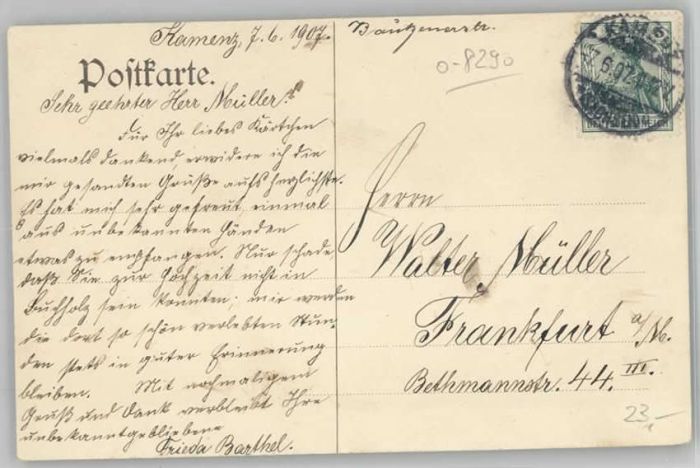 Kamenz, 7.6.1907.
Postkarte.
Sehr geehrter Herr Müller!
Für Ihr liebes Kärtchen
vielmals dankend, erwidere ich die
mir gesandten Grüße aufs herzlichste.
Es hat mich sehr gefreut, einmal
aus unbekannten Händen
etwas zu empfangen. Nur schade,
daß Sie zur Hochzeit nicht in
Buchholz sein konnten; mir werden
die dort so schön verlebten Stun-
den stets in guter Erinnerung
bleiben. Mit nochmaligem
Gruß und Dank verbleibt Ihre
unbekanntgebliebene
Frieda Barthel.
Bautzenerstr.
0-8290
Herrn
Walter Müller
Frankfurt a/M.
Bethmannstr. 44 III.
23,-